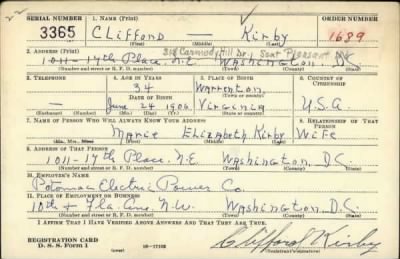 SERIAL NUMBER 1. NAME (Print) ORDER NUMBER
3365 Clifford — Kirby 1689
(First) (Middle) (Last)
2. ADDRESS (Print) 318 Carmody Hill Dr., Seat Pleasant Md
1011-17th Place, N.E. Washington, D.C.
(Number and street or R. F. D. number) (Town) (County) (State)
3. TELEPHONE 4. AGE IN YEARS 5. PLACE OF BIRTH 6. COUNTRY OF CITIZENSHIP
34 Warrenton
DATE OF BIRTH (Town or county)
— June 24 1906 Virginia U.S.A
(Exchange) (Number) (Mo.) (Day) (Yr.) (State or country)
7. NAME OF PERSON WHO WILL ALWAYS KNOW YOUR ADDRESS 8. RELATIONSHIP OF THAT PERSON
Marie Elizabeth Kirby Wife
(Mr., Mrs., Miss) (First) (Middle) (Last)
9. ADDRESS OF THAT PERSON
1011-17th Place, N.E. Washington, D.C.
(Number and street or R. F. D. number) (Town) (County) (State)
10. EMPLOYER'S NAME
Potomac Electric Power Co.
11. PLACE OF EMPLOYMENT OR BUSINESS
10th & Fla. Ave. N.W. Washington, D.C.
(Number and street or R. F. D. number) (Town) (County) (State)
I AFFIRM THAT I HAVE VERIFIED ABOVE ANSWERS AND THAT THEY ARE TRUE.
REGISTRATION CARD
D. S. S. Form 1 (over) 16-17105 Clifford Kirby
(Registrant's signature)